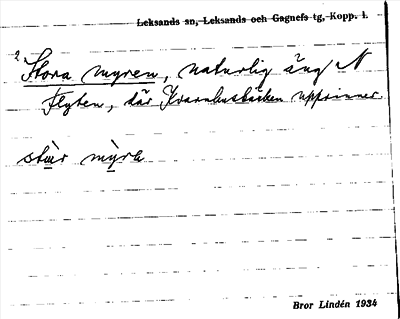 Leksands sn, Leksands och Gagnefs tg, Kopp. l.
2 Stora myren, naturlig äng N
Flyten, där Kvarnbusbäcken upprinner.
stùr mỳra
Bror Lindén 1934